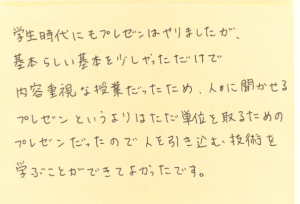 学生時代にもプレゼンはやりましたが、
基本らしい基本を少しやっただけで
内容重視な授業だったため、人に聞かせる
プレゼンというよりはただ単位を取るための
プレゼンだったので人を引き込む技術を
学ぶことができてよかったです。